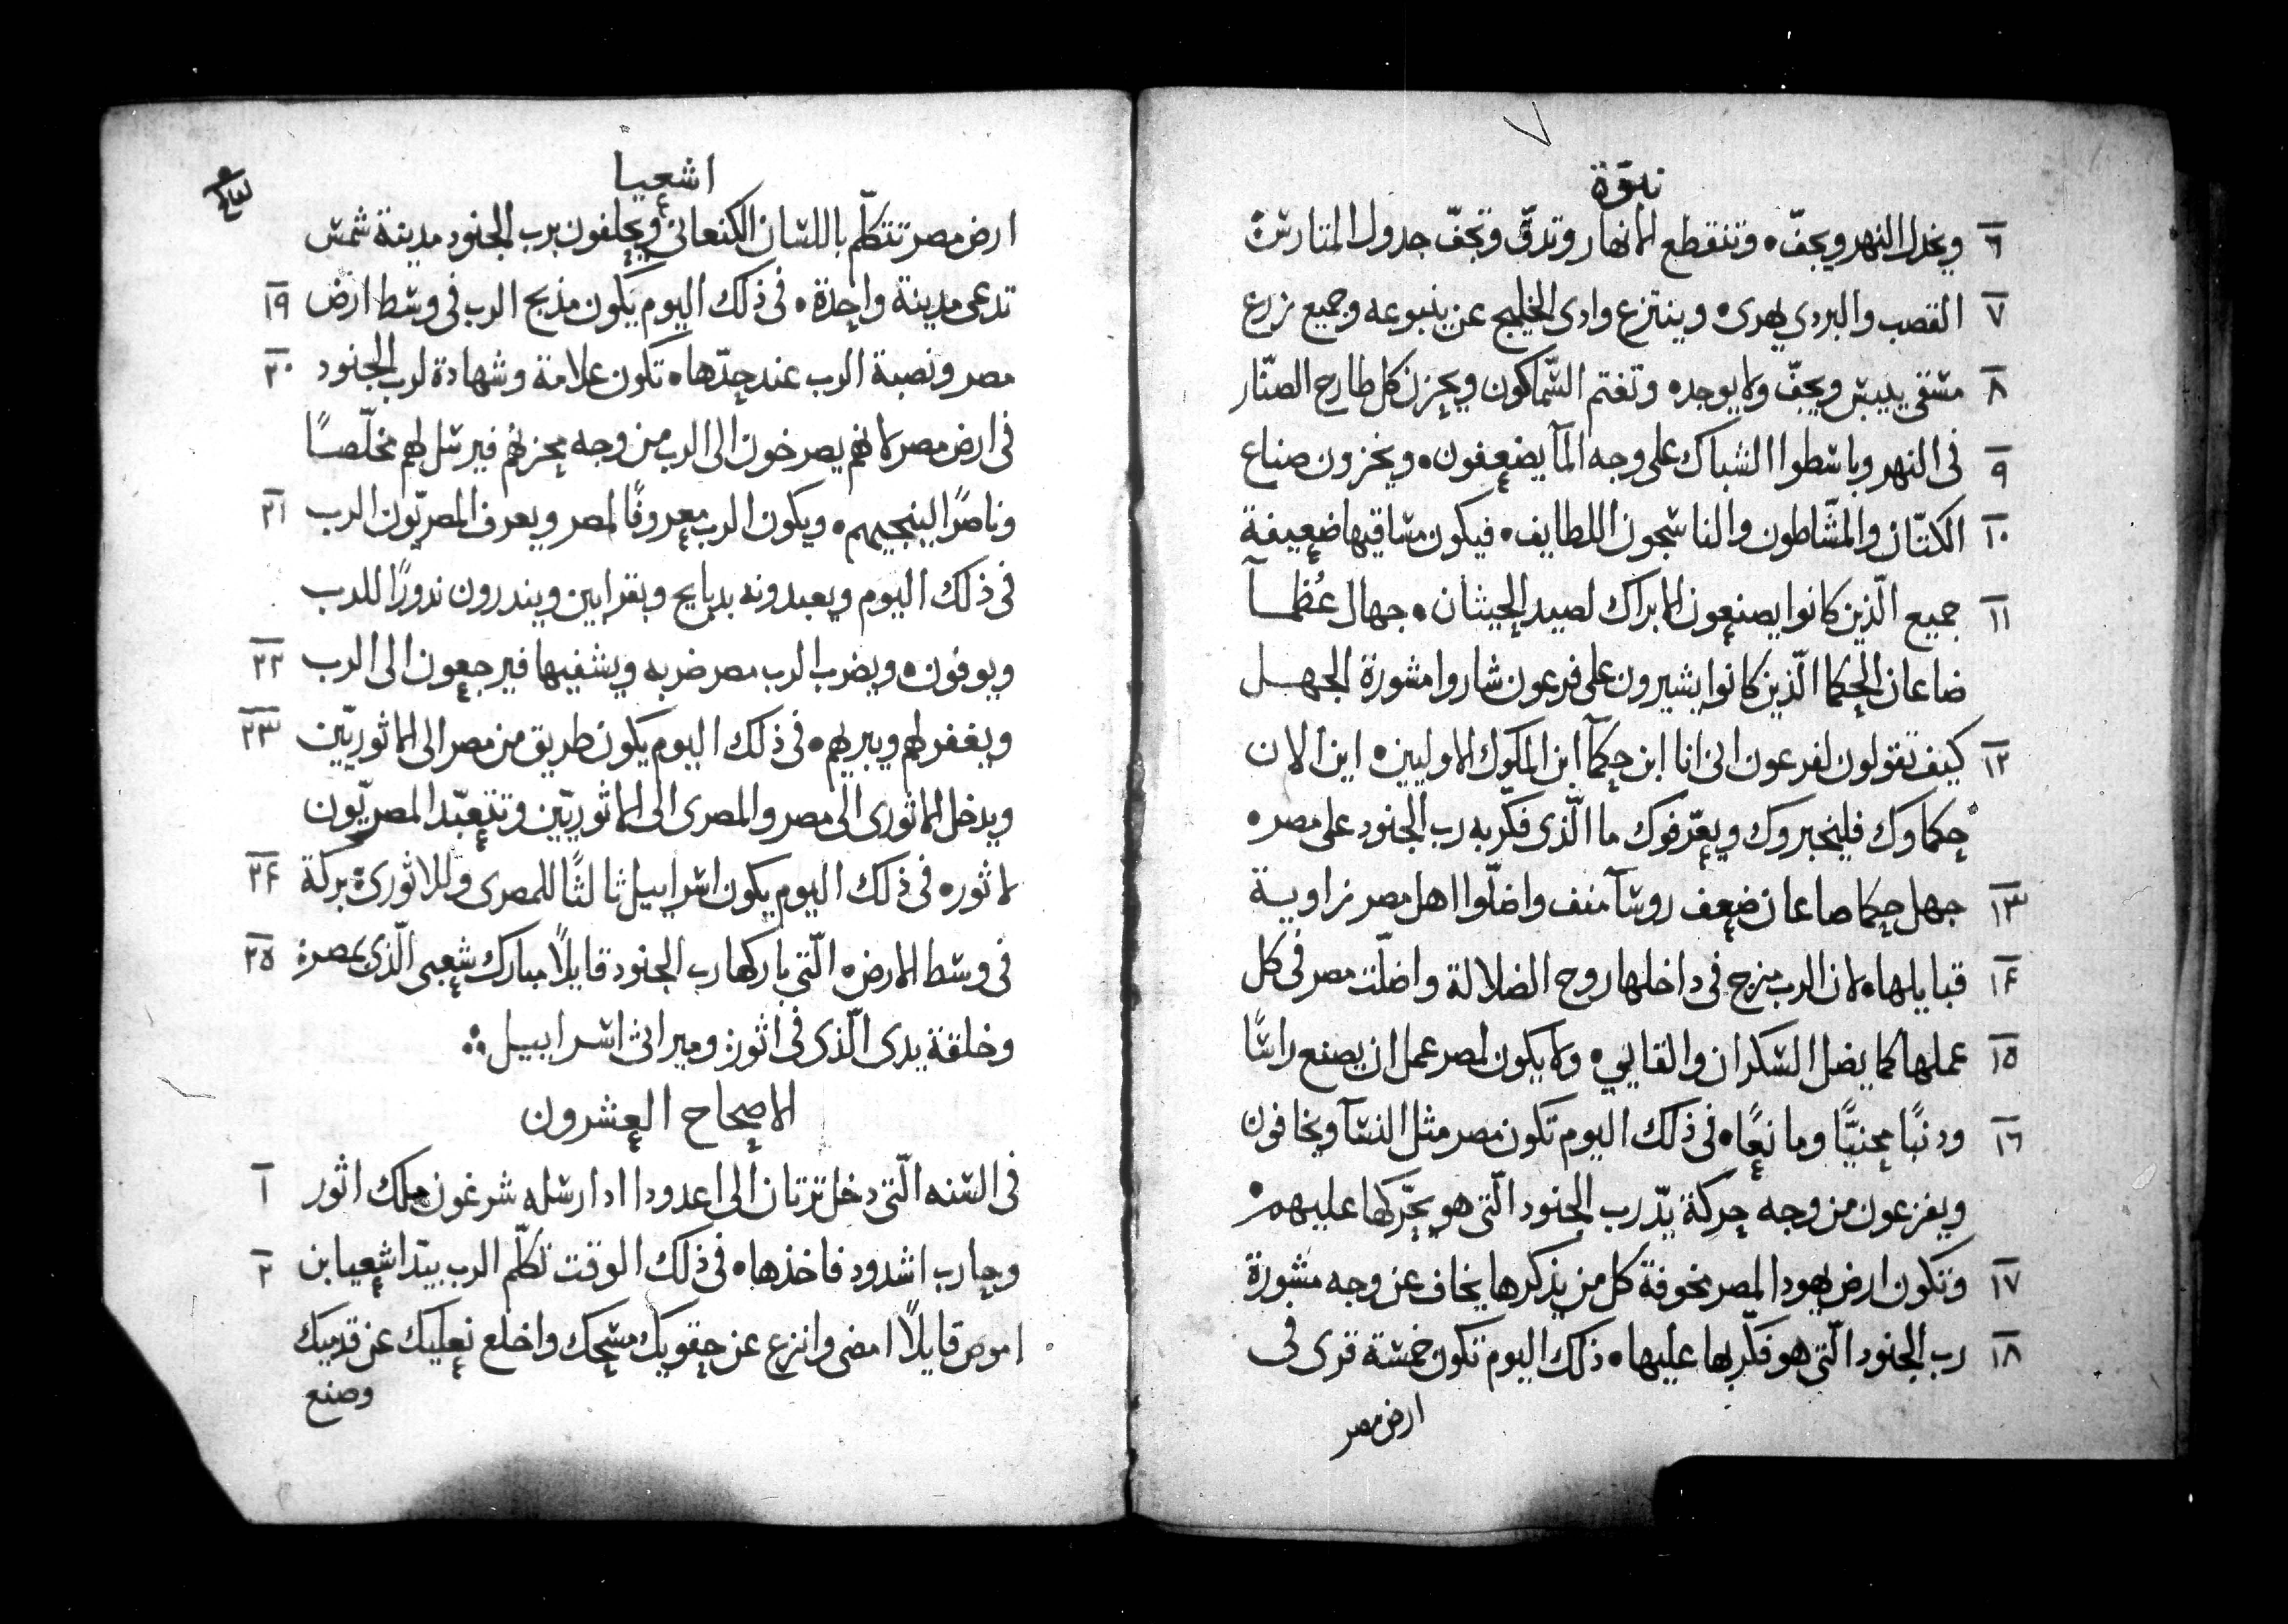 نبوّة
٦ ويخدل النهر ويجفّ. وتنقطع الانهار وتدقّ وتجفّ جدول المتارس.
٧ القصب والبردي يهدى. وينتزع وادى الخليج عن ينبوعه وجميع زرع
٨ مسقى ييبس ويجفّ ولا يوجد. وتغتم السّماكون ويحزن كل طارح الصنّار
٩ فى النهر وباسطوا الشباك على وجه المآ يضعفون. ويخزون صناع
١٠ الكتّان والمشّاطون والناسجون اللطايف. فيكون مساقيها ضعيفة
١١ جميع الّذين كانوا يصنعون الابراك لصيد الحيتان. جهال عُظمآ
ضاعان الحكما الّذين كانوا يشيرون على فرعون شاروا مشورة الجهل
١٢ كيف تقولون لفرعون انى انا ابن حكمآ ابن الملوك الاوليين. اين الان
حكماوك فليخبروك ويعرّفوك ما الّذى فكّر به رب الجنود على مصر.
١٣ جهل حكما صاعان ضعف روسآ منف واضلّوا اهل مصر زاوية
١٤ قبايلها. لان الرب مزج فى داخلها روح الضلالة واضلّت مصر فى كل
١٥ عملها كما يضل السكران والقايي. ولا يكون لمصر عمل ان يصنع راسًا
١٦ ودنبًا محنيًّا ومانعًا. فى ذلك اليوم تكون مصر مثل النسآ ويخافون
ويفزعون من وجه حركة يدّ رب الجنود الّتى هو يحّركها عليهم.
١٧ وتكون ارض يهودا لمصر مخوفة كل من يذكرها يخاف عن وجه مشورة
١٨ رب الجنود الّتى هو فكّر بها عليها. ذلك اليوم تكون خمسة قرى فى
ارض مصر
اشعيا
ارض مصر تتكلّم باللسان الكنعانى ويحلفون برب الجنود مدينة شمس
تدعى مدينة واحدة. فى ذلك اليوم يكون مذبح الرب فى وسط ارض ١٩
مصر ونصبة الرب عند حدّها. تكون علامة وشهادة لرب الجنود ٢٠
فى ارض مصر لانهم يصرخون الى الرب من وجه محزنهم فيرسل لهم مخلّصًا
وناصرًا لينجيهم. ويكون الرب معروفًا لمصر ويعرف المصريّون الرب ٢١
فى ذلك اليوم ويعبدونه بدبايح وبقرابين ويندرون ندورًا للرب
ويوفون. ويضرب الرب مصر ضربه ويشفيها فيرجعون الى الرب ٢٢
ويغفر لهم ويبريهم. فى ذلك اليوم يكون طريق من مصر الى الاثوريّين ٢٣
ويدخل الاثورى الى مصر والمصرى الى الاثوريّين وتتعبّد المصريّون
لاثور. فى ذلك اليوم يكون اسراييل ثالثًا للمصرى وللاثورى بركة ٢٤
فى وسط الارض. الّتى باركها رب الجنود قايلًا مبارك شعبى الّذى بمصر. ٢٥
وخلقة يدى الّذى فى اثور وميراثى اسراييل
الاصحاح العشرون
فى السنه الّتى دخل ترتان الى اعدودا اد ارسله شرغون ملك اثور ١
وحارب اشدود فاخذها. فى ذلك الوقت تكلّم الرب بيدّ اشعيا بن ٢
اموص قايلًا امضى وانزع عن حقويك مسحك واخلع نعليك عن قدميك
وصنع